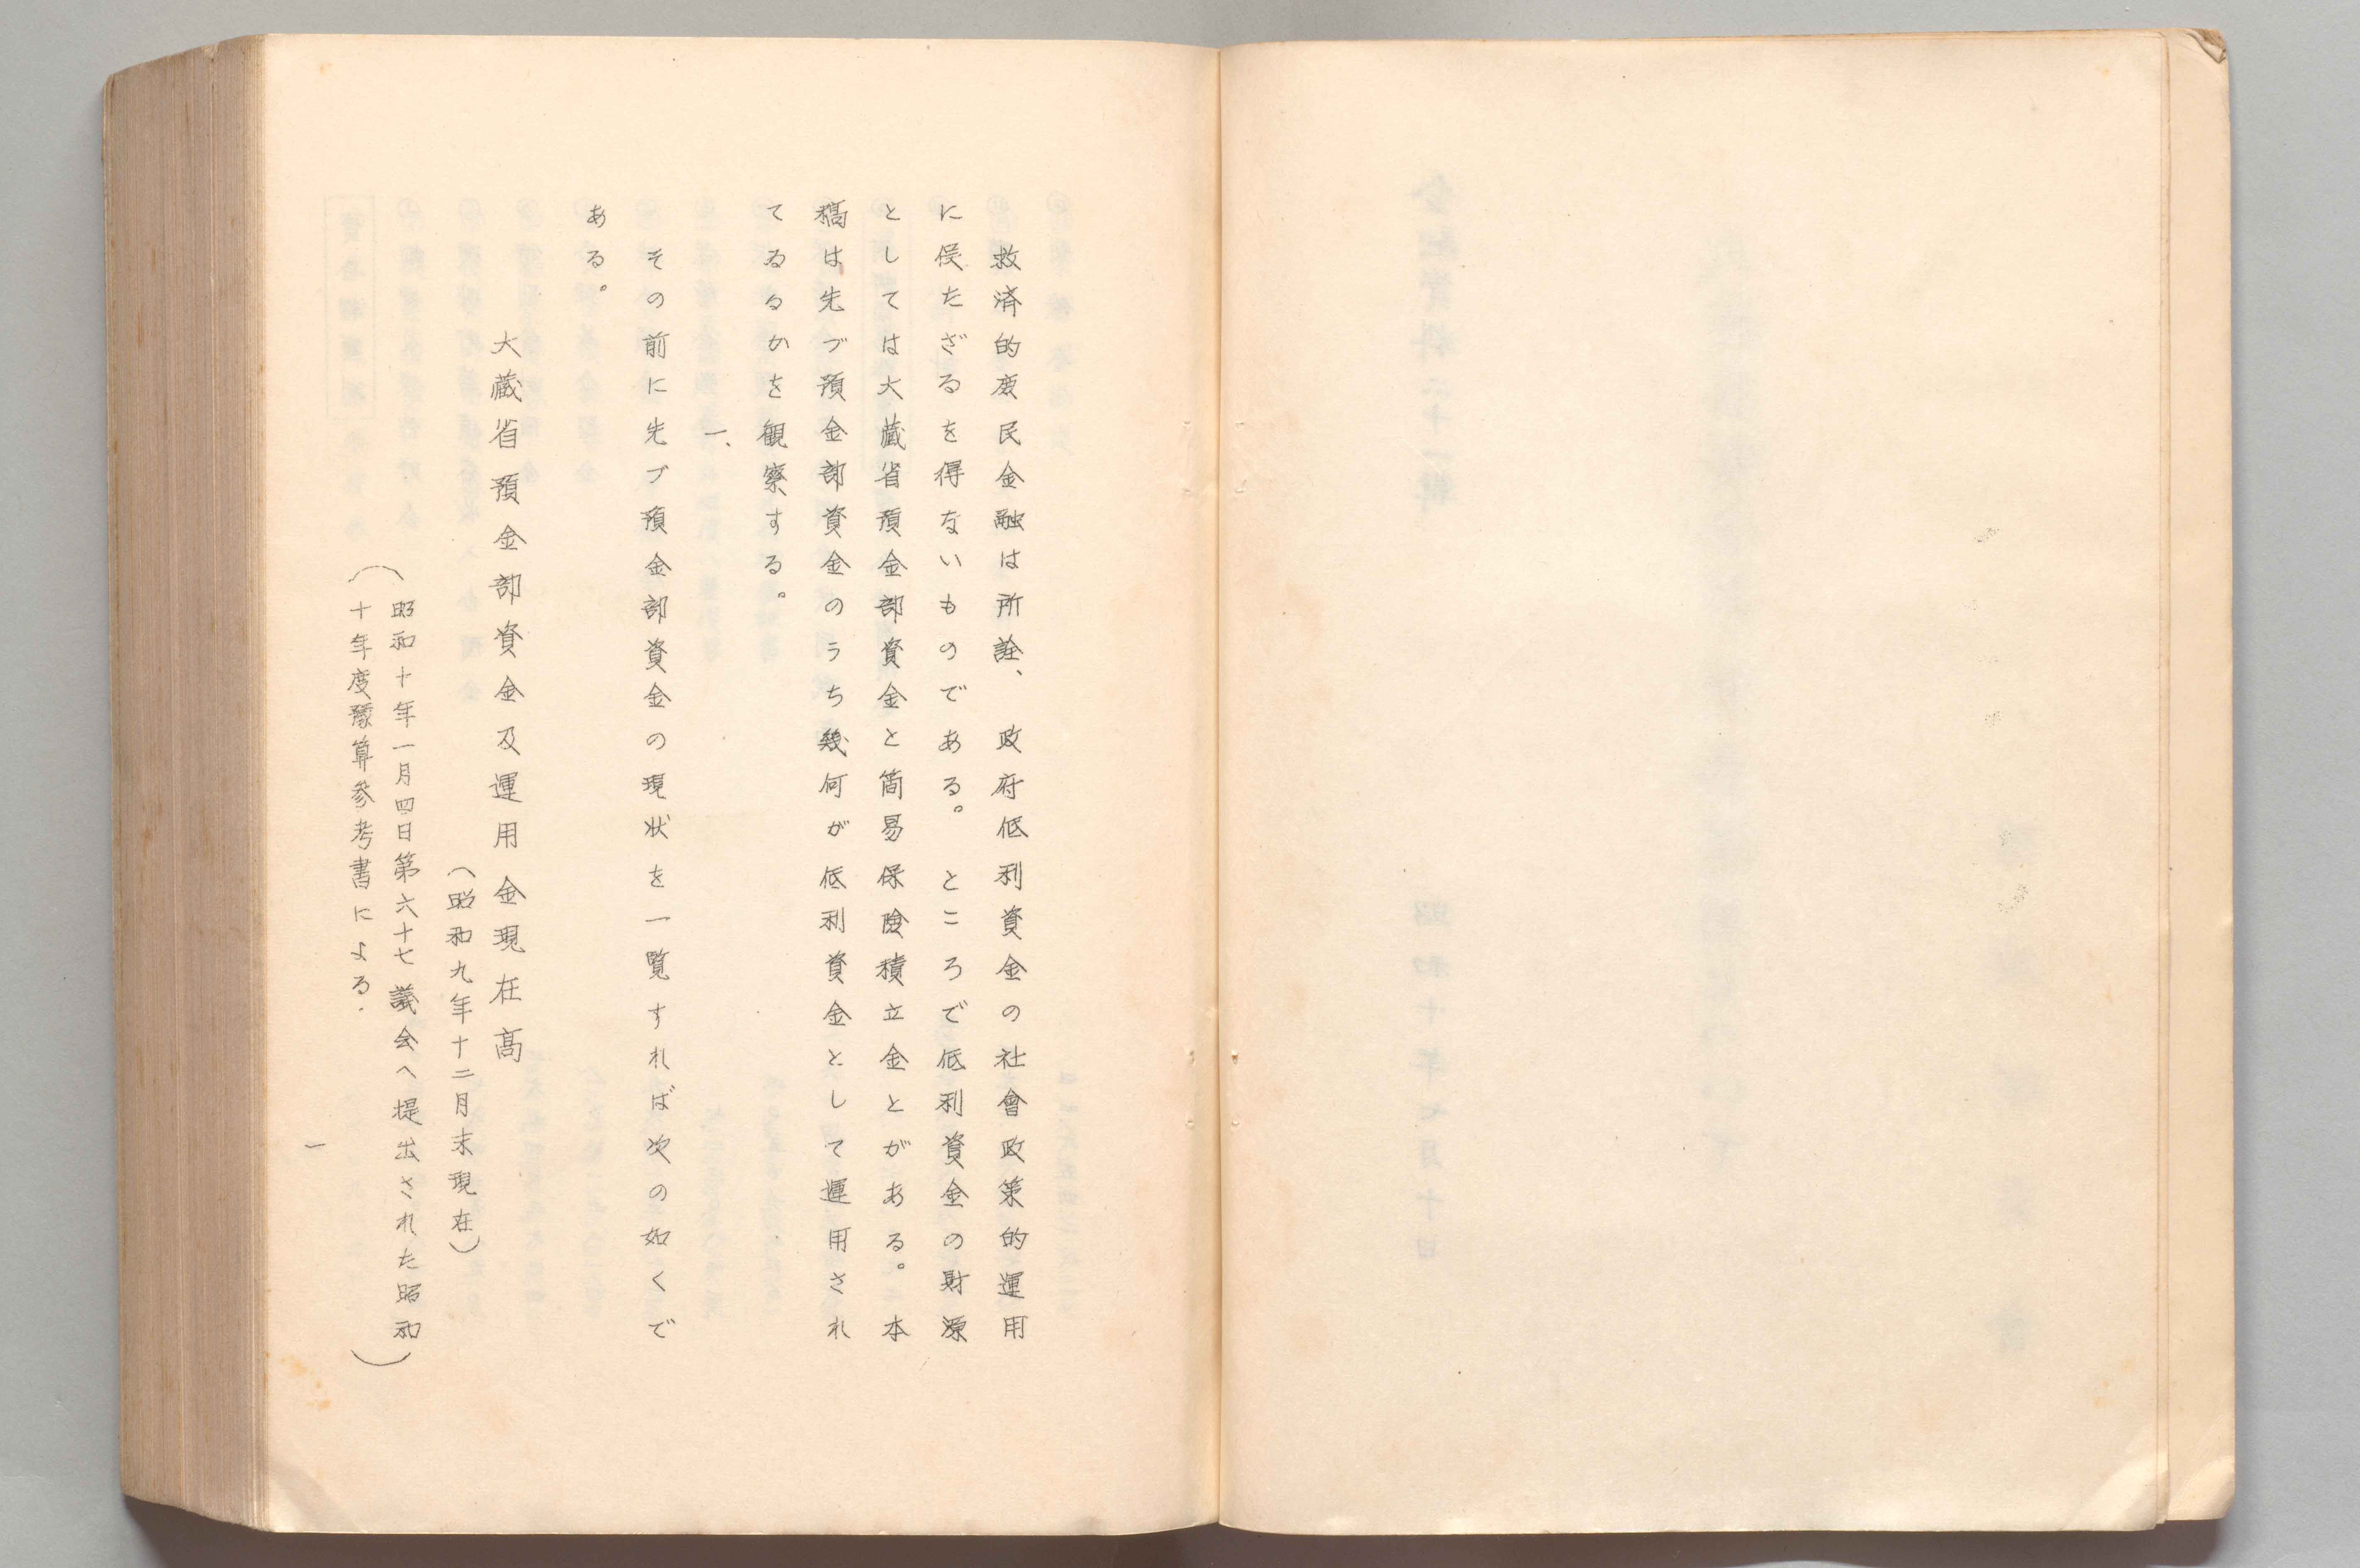 救済的庶民金融は所詮、政府低利資金の社會政策的運用
に俟たざるを得ないものである。ところで低利資金の財源
としては大蔵省預金部資金と簡易保険積立金とがある。本
稿は先づ預金部資金のうち幾何が低利資金として運用され
てゐるかを観察する。
一、
その前に先づ預金部資金の現状を一覧すれば次の如くで
ある。
大蔵省預金部資金及運用金現在高
（昭和九年十二月末現在）
（昭和十年一月四日第六十七議会へ提出された昭和
十年度豫算参考書による.）
一